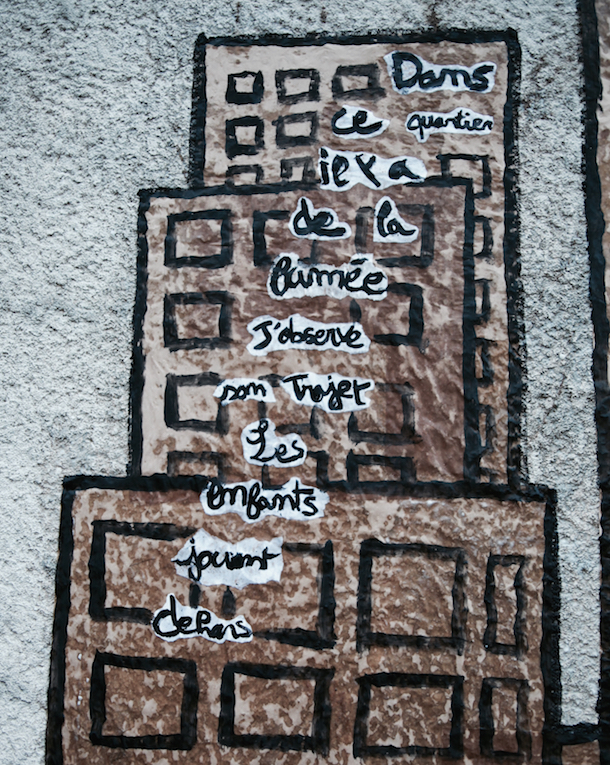 Dans
ce quartier
il y a
de la
fumée
J'observe
son Trajet
Les
enfants
jouent
dehors